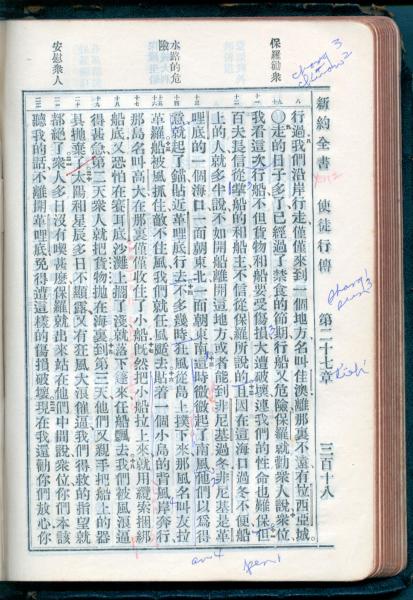 新約全書 使徒行傳 第二十七章 三百十八
保羅勸衆
水路的危險
安慰衆人
行過我們沿岸行走僅僅來到一個地方名叫佳澳離那裏不遠有拉西亞城
○走的日子多了已經過了禁食的節期行船又危險保羅就勸衆人說衆位
我看這次行船不但貨物和船要受傷損大遭破壞連我們的性命也難保但
百夫長信從掌船的和船主不信從保羅所說的且因在這海口過冬不便船
上的人就多半說不如開船離開這地方或者能到非尼基過冬非尼基是革
哩底的一個海口一面朝東北一面朝東南這時微微起了南風他們以爲得
意就起了錨貼近革哩底行去不多幾時狂風從島上撲下來那風名叫友拉
革羅船被風抓住敵不住風我們就任風颳去貼着一個小島的背風岸奔行
那島名叫高大在那裏僅僅收住了小船旣然把小船拉上來就用纜索捆綁
船底又恐怕在賽耳底沙灘上擱了淺就落下篷來任船飄去我們被風浪逼
得甚急第二天衆人就把貨物抛在海裏到第三天他們又親手把船上的器
具抛棄了太陽和星辰多日不顯露又有狂風大浪催逼我們得救的指望就
都絕了衆人多日沒有喫甚麽保羅就出來站在他們中間說衆位你們本該
聽我的話不離開革哩底免得遭這樣的傷損破壞現在我還勸你們放心你
an 4
pen 1